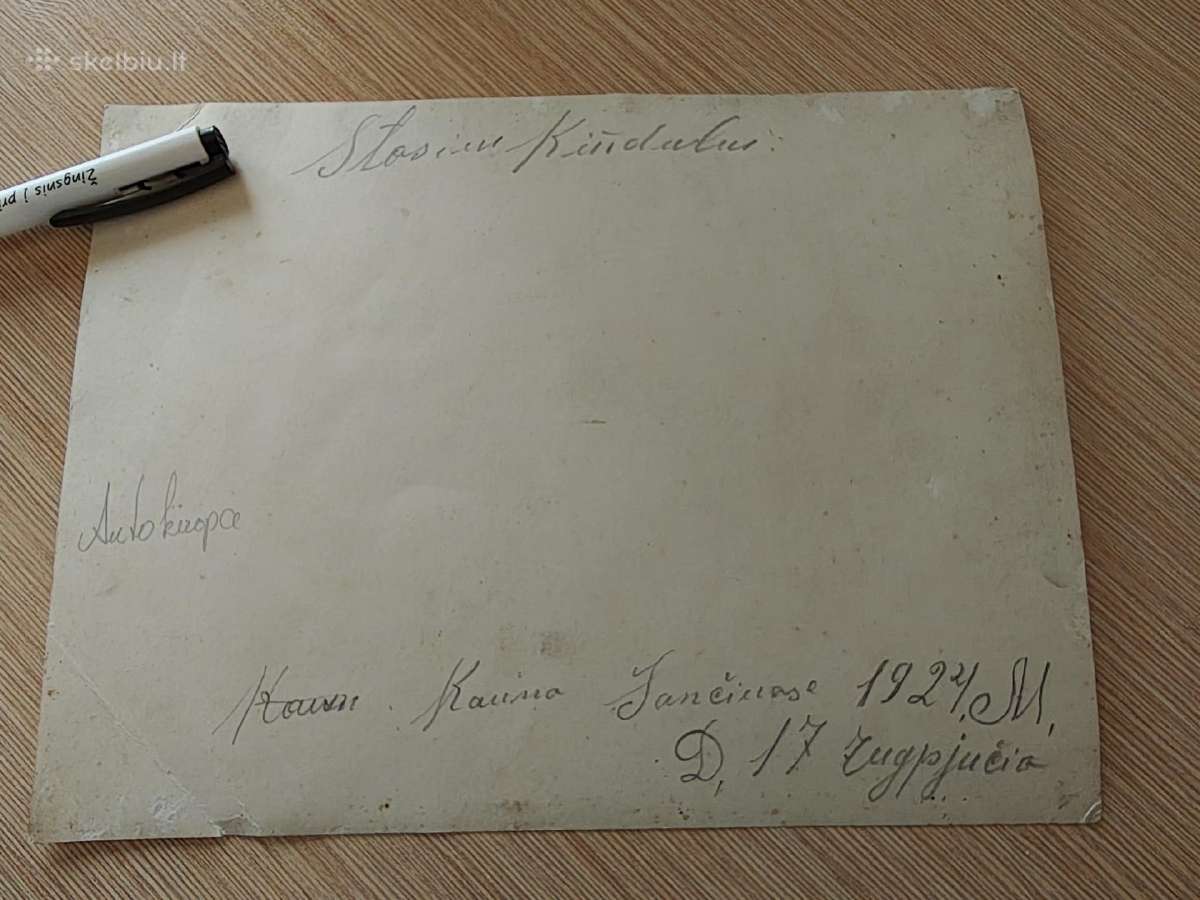 skelbiu.lt
Žingsnis į pri
Stasiui Kindului
Autokuopa
Kaun. Kauno Šančiuose 1924, M,
D, 17 rugpjučio